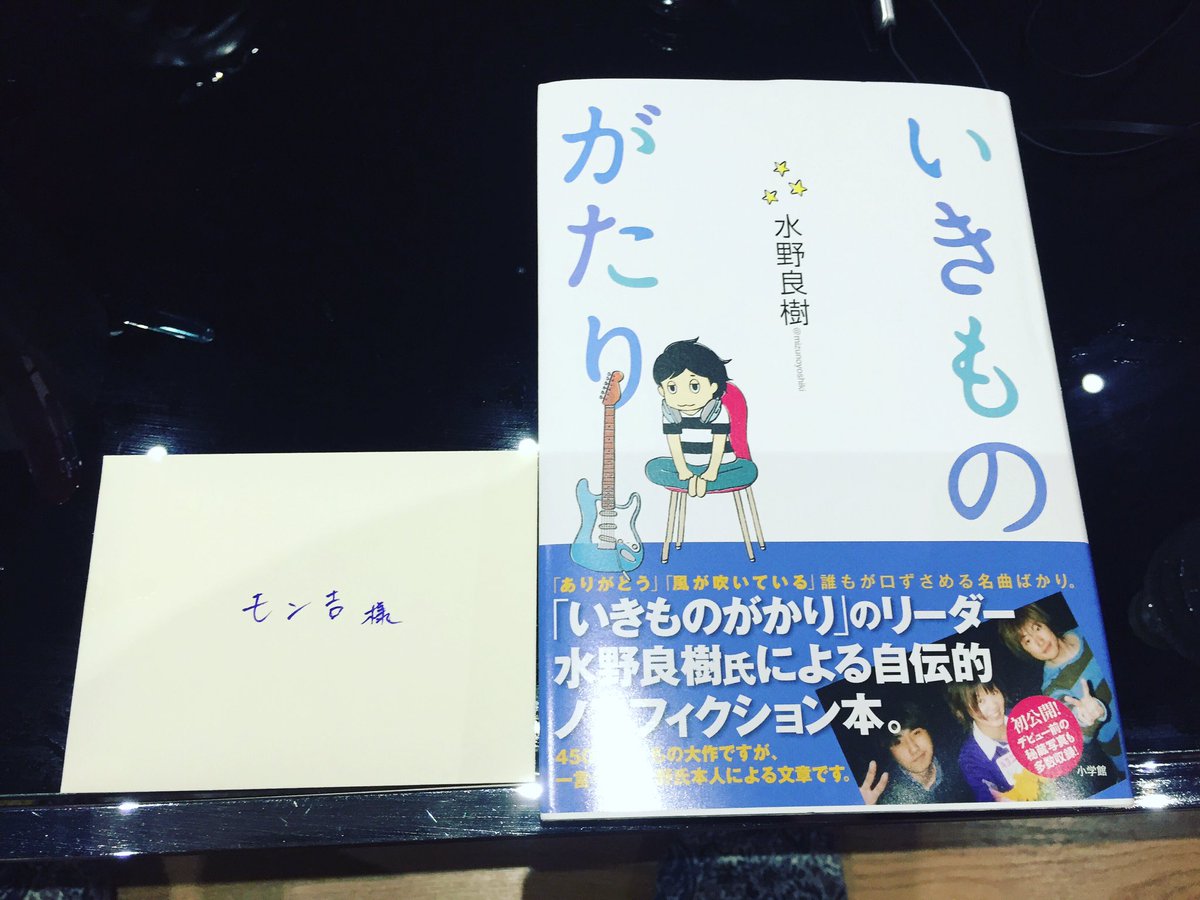 モン吉様
いきもの
がたり
水野良樹
@mizunoyoshiki
「ありがとう」「風が吹いている」誰もが口ずさめる名曲ばかり。
「いきものがかり」のリーダー
水野良樹氏による自伝的
ノ フィクション本。
45 の大作ですが、
一 氏本人による文章です。
初公開!
デビュー前の
秘蔵写真も
多数収録!
小学館